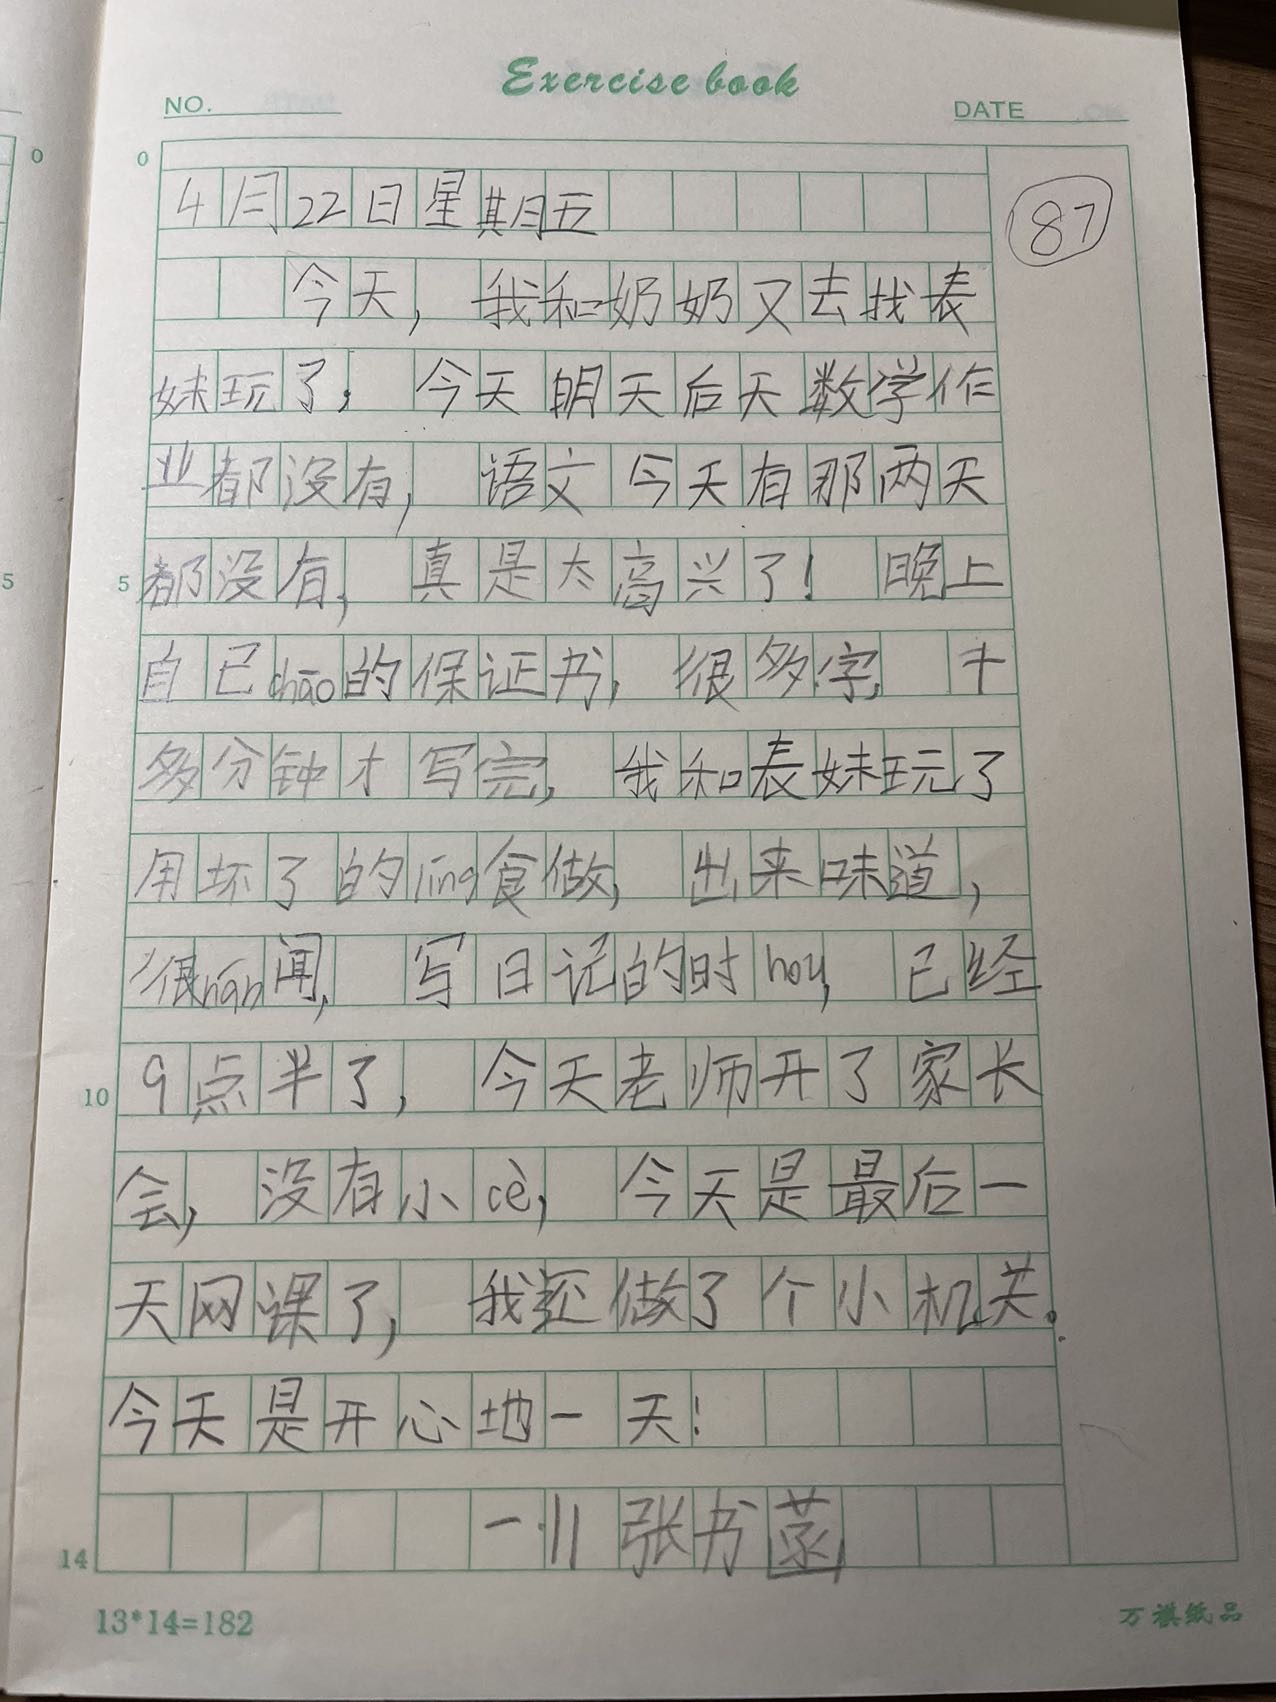 Exercise book
NO.
DATE
0
0
87
4月22日星期五
今天，我和奶奶又去找表
妹玩了，今天明天后天数学作
业都没有，语文今天有那两天
5
5
都没有，真是太高兴了！晚上
自己chāo的保证书，很多字，十
多分钟才写完，我和表妹玩了
用坏了的líng食做，出来味道，
很nán闻，写日记的时hou，已经
10
9点半了，今天老师开了家长
会，没有小cè，今天是最后一
天网课了，我还做了个小机关。
今天是开心地一天！
14
张书菡
13*14=182
万祺纸品